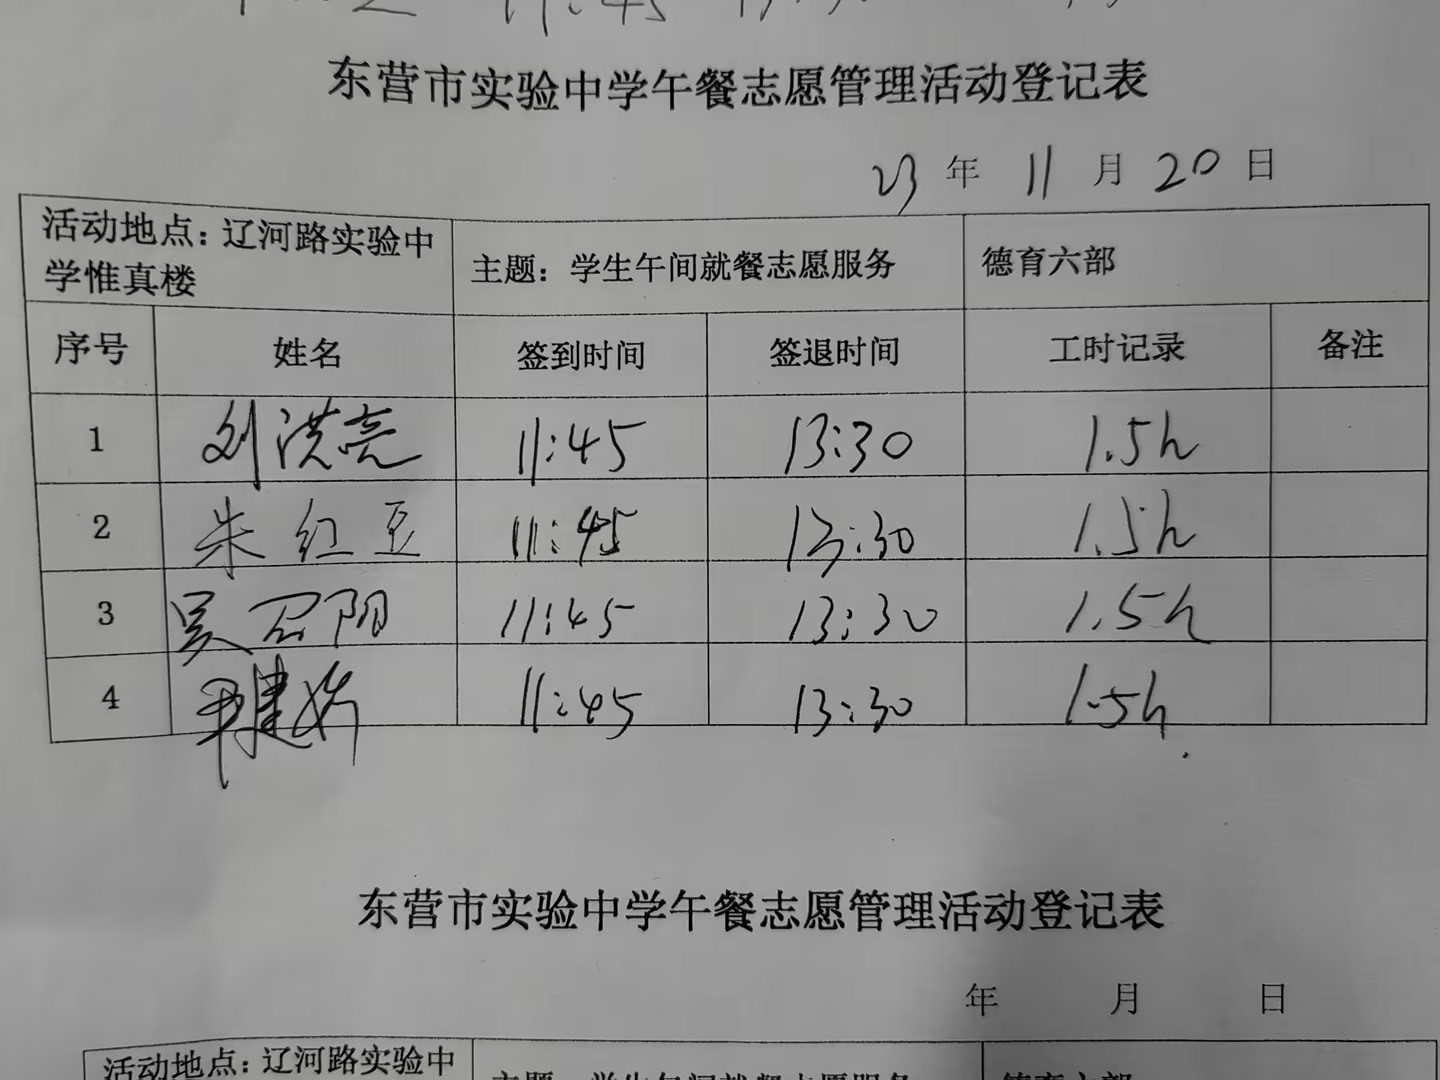 11:45 13:30
东营市实验中学午餐志愿管理活动登记表
23 年 11 月 20 日
活动地点：辽河路实验中
学惟真楼
主题：学生午间就餐志愿服务
德育六部
序号 姓名 签到时间 签退时间 工时记录 备注
1 刘洪亮 11:45 13:30 1.5h
2 朱红豆 11:45 13:30 1.5h
3 吴召阳 11:45 13:30 1.5h
4 11:45 13:30 1.5h
东营市实验中学午餐志愿管理活动登记表
年 月 日
活动地点：辽河路实验中
主题：学生午间就餐志愿服务
德育六部